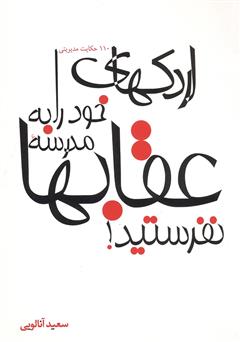 ۱۱۰ حکایت مدیریتی
اردکهای
خود را به
مدرسهٔ
عقابها
نفرستید!
سعید آنالویی